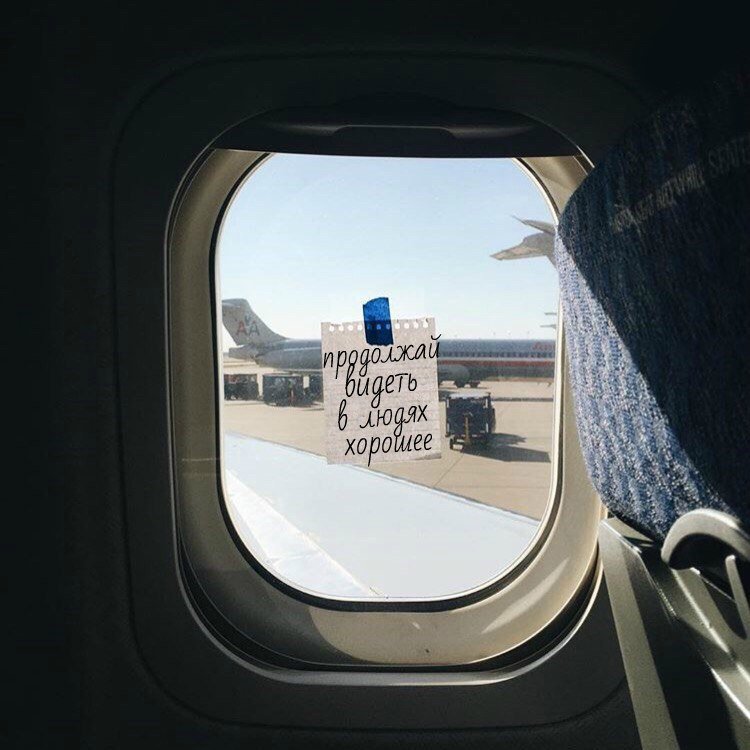 AA
продолжай
видеть
в людях
хорошее